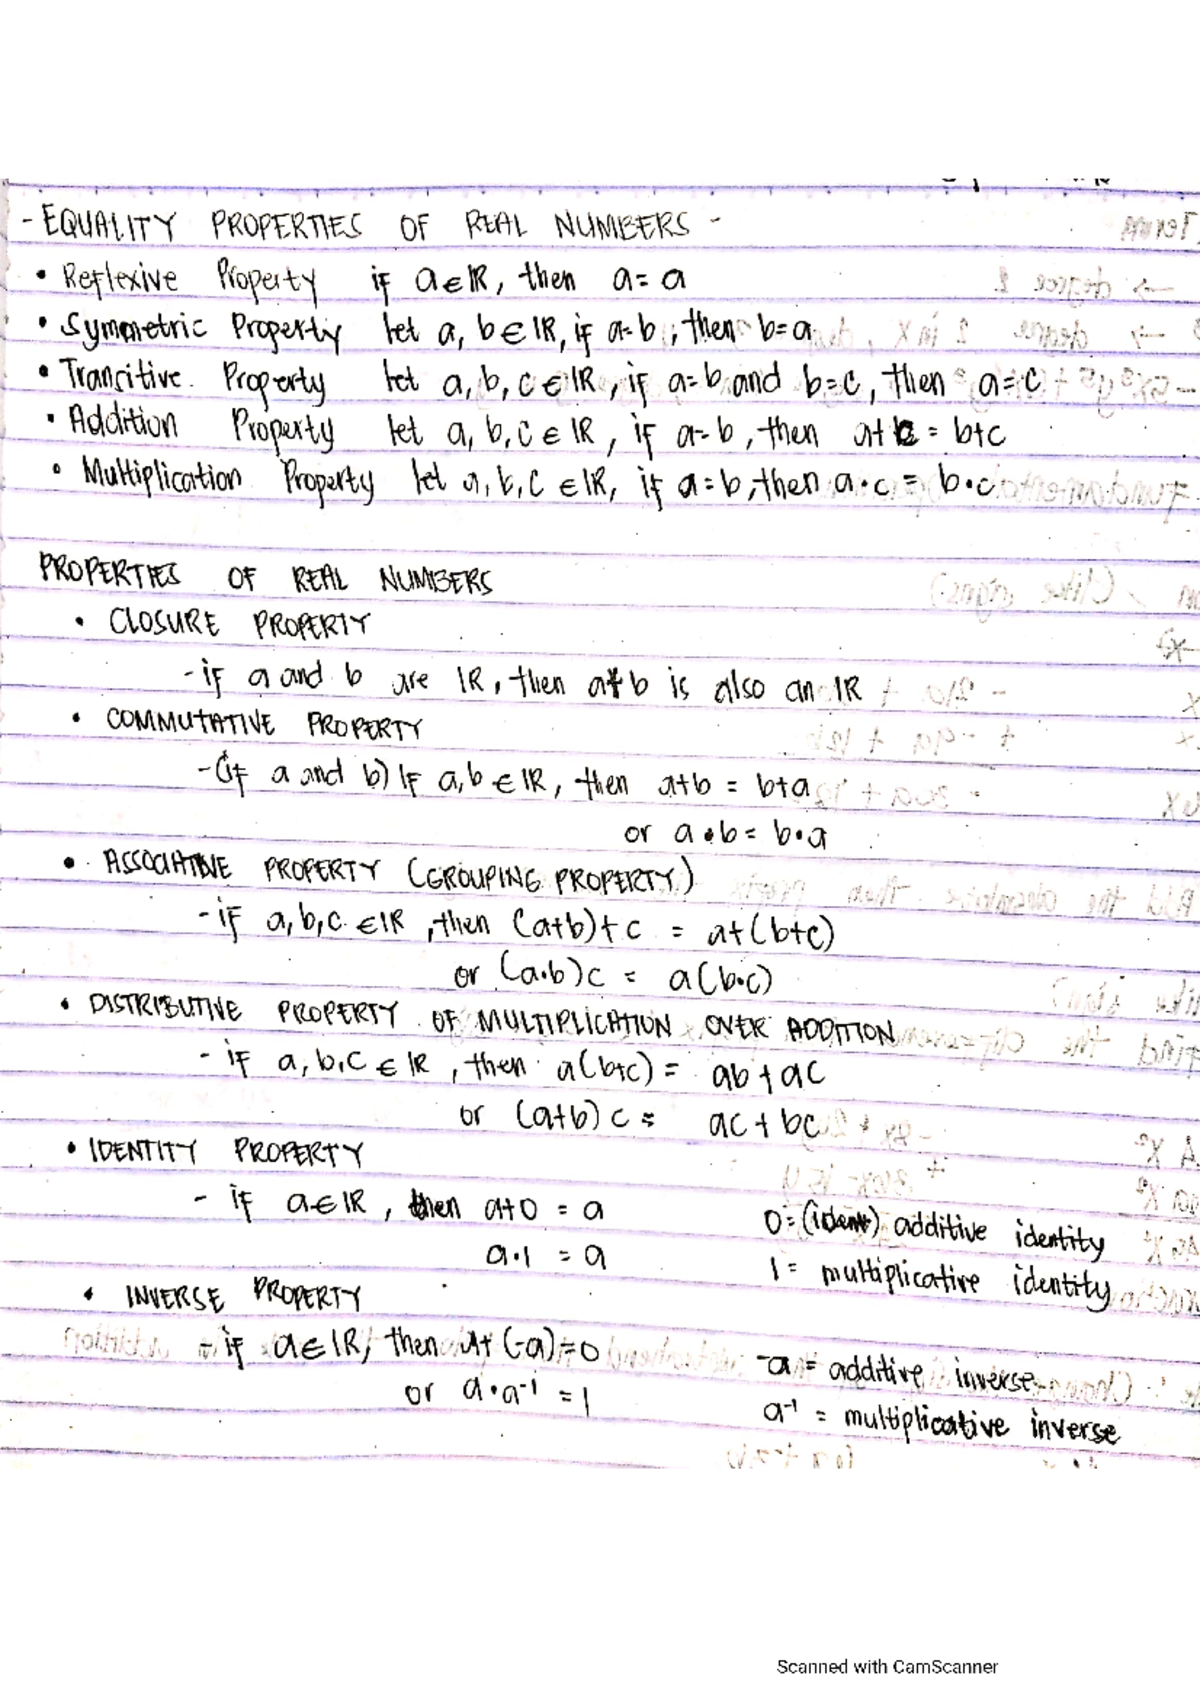 - EQUALITY PROPERTIES OF REAL NUMBERS -
• Reflexive Property if a∈ℝ, then a=a
• Symmetric Property let a, b∈ℝ, if a=b, then b=a
• Transitive Property let a, b, c∈ℝ, if a=b and b=c, then a=c
• Addition Property let a, b, c∈ℝ, if a=b, then a+c = b+c
• Multiplication Property let a, b, c ∈ℝ, if a=b, then a•c = b•c
PROPERTIES OF REAL NUMBERS
• CLOSURE PROPERTY
- if a and b are ℝ, then a+b is also an ℝ
• COMMUTATIVE PROPERTY
- (if a and b) If a,b ∈ℝ, then a+b = b+a
or a•b = b•a
• ASSOCIATIVE PROPERTY (GROUPING PROPERTY)
- if a,b,c ∈ℝ, then (a+b)+c = a+(b+c)
or (a•b)c = a(b•c)
• DISTRIBUTIVE PROPERTY OF MULTIPLICATION OVER ADDITION
- if a,b,c ∈ℝ, then a(b+c) = ab+ac
or (a+b)c = ac+bc
• IDENTITY PROPERTY
- if a∈ℝ, then a+0 = a
0=(ident) additive identity
a•1 = a
1= multiplicative identity
• INVERSE PROPERTY
- if a∈ℝ, then a+(-a)=0
-a = additive inverse
or a•a⁻¹ = 1
a⁻¹ = multiplicative inverse
Scanned with CamScanner